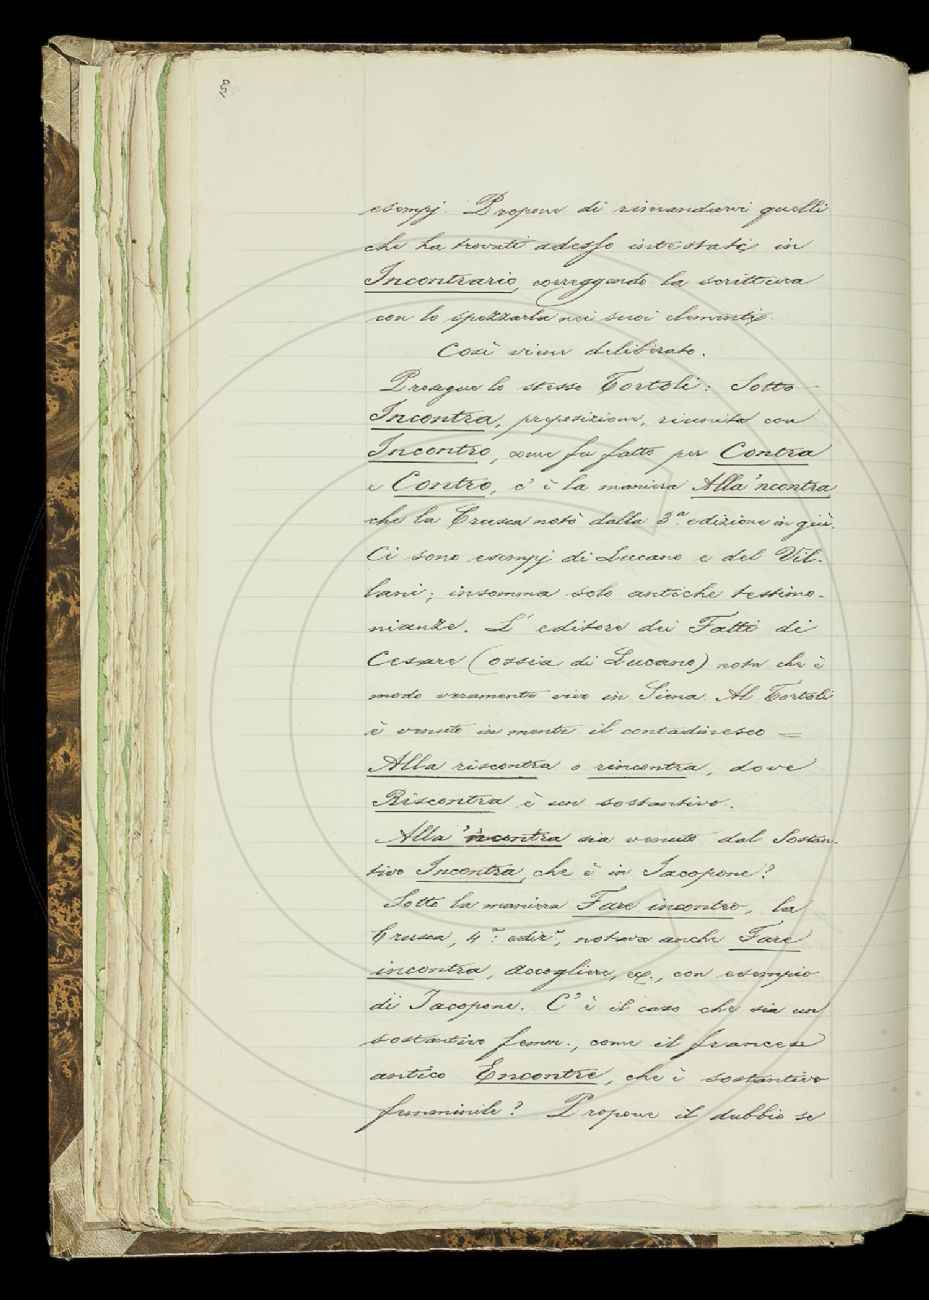 esempj. Propone di rimandarvi quelli
che ha trovati adesso intestati in
Incontrario, correggendo la scrittura
con lo spezzarla nei suoi elementi.
Così viene deliberato.
Prosegue lo stesso Tortoli: Sotto
Incontra, preposizione, riunita con
Incontro, come fu fatto per Contra
e Contro, c'è la maniera Alla 'ncontra
che la Crusca notò dalla 3.ª edizione in giù.
Ci sono esempj di Lucano e del Vil-
lani; insomma solo antiche testimo-
nianze. L'editore dei Fatti di
Cesare (ossia di Lucano) nota che è
modo veramente vivo in Siena. Al Tortoli
è venuto in mente il contadinesco =
Alla riscontra o rincontra, dove
Riscontra è un sostantivo.
Alla 'ncontra sia venuto dal Sostan-
tivo Incontra, che è in Jacopone?
Sotto la maniera Fare incontro, la
Crusca, 4.ª ediz.e, notava anche Fare
incontra, Accogliere, ec., con esempio
di Jacopone. C'è il caso che sia un
sostantivo femm., come il francese
antico Encontre, che è sostantivo
femminile? Propone il dubbio se